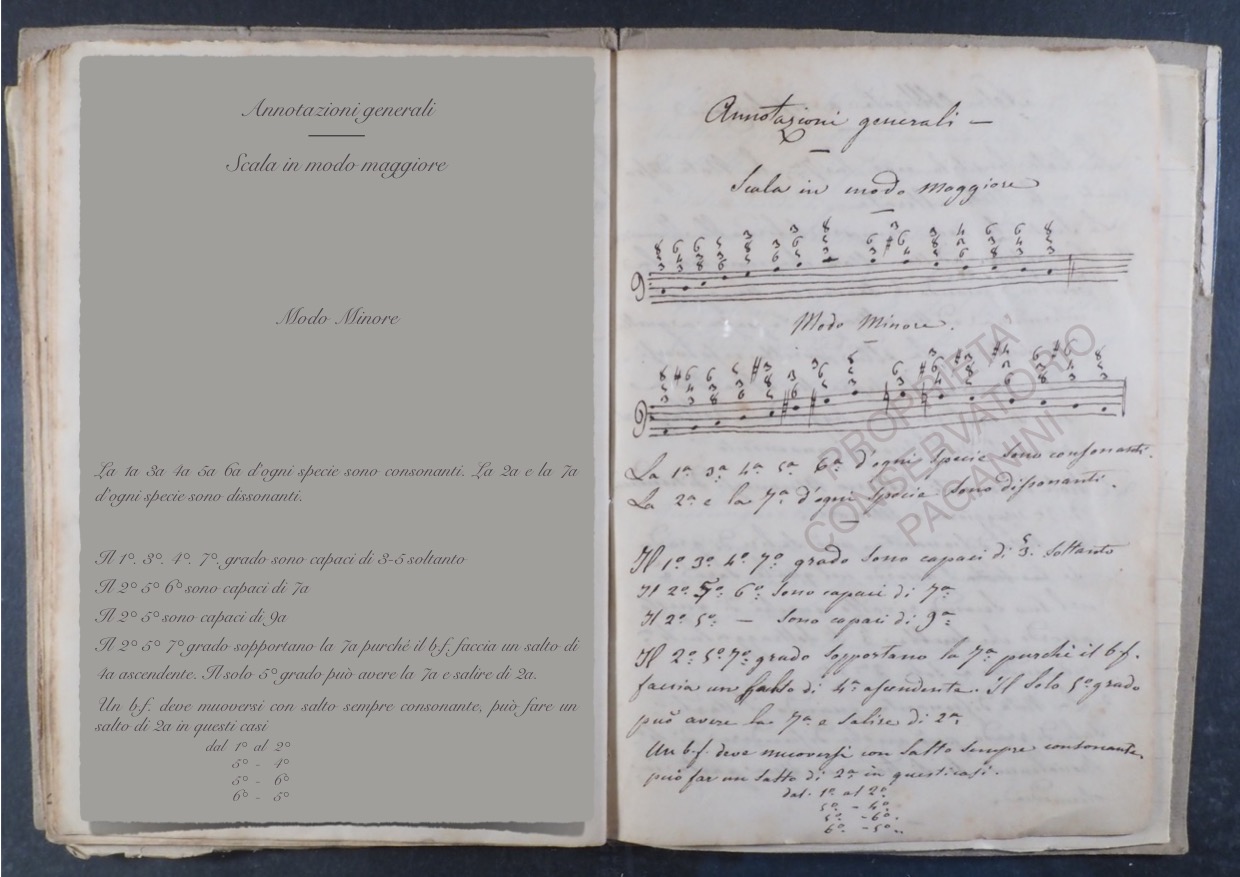 Annotazioni generali
Scala in modo maggiore
Modo Minore
La 1a 3a 4a 5a 6a d'ogni specie sono consonanti. La 2a e la 7a
d'ogni specie sono dissonanti.
Il 1º. 3º. 4º. 7º. grado sono capaci di 3-5 soltanto
Il 2º 5º 6º sono capaci di 7a
Il 2º 5º sono capaci di 9a
Il 2º 5º 7º grado sopportano la 7a purché il b.f. faccia un salto di
4a ascendente. Il solo 5º grado può avere la 7a e salire di 2a.
Un b.f. deve muoversi con salto sempre consonante, può fare un
salto di 2a in questi casi
dal 1º al 2º
5º - 4º
5º - 6º
6º - 5º
Annotazioni generali —
Scala in modo Maggiore
Modo Minore.
La 1ª 3ª 4ª 5ª 6ª d'ogni specie sono consonanti.
La 2ª e la 7ª d'ogni specie sono dissonanti.
Il 1º 3º 4º 7º grado sono capaci di 5 3. soltanto
Il 2º 5º 6º sono capaci di 7ª
Il 2º 5º — sono capaci di 9ª
Il 2º 5º 7º grado sopportano la 7ª purchè il b.f.
faccia un salto di 4ª ascendente. Il solo 5º grado
può avere la 7ª e salire di 2ª
Un b.f. deve muoversi con salto sempre consonante,
può far un salto di 2ª in questi casi.
dal 1º al 2º
5º - 4º
5º - 6º
6º - 5º
PROPRIETA'
CONSERVATORIO
PAGANINI